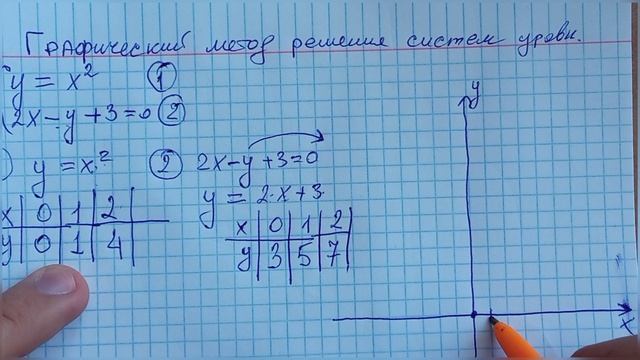 Графический метод решения систем уравн.
y = x² ①
2x - y + 3 = 0 ②
) y = x²
x 0 1 2
y 0 1 4
② 2x - y + 3 = 0
y = 2·x + 3
x 0 1 2
y 3 5 7
y
x